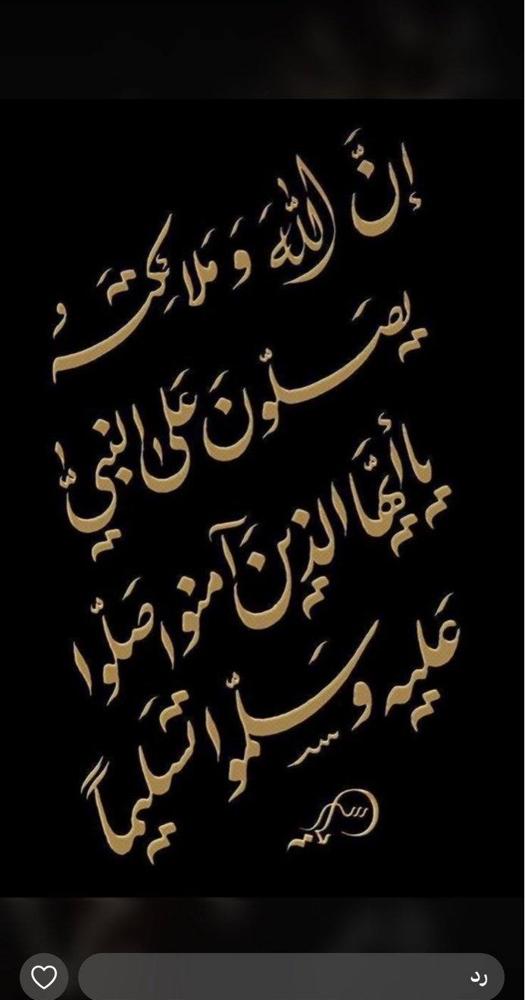 إنَّ اللهَ وَمَلائِكَتَهُ
يصَلّونَ عَلى النبيِّ
يا أيُّهَا الذينَ آمنوا صَلّوا
عَليه وسَلّموا تسَليماً
رد